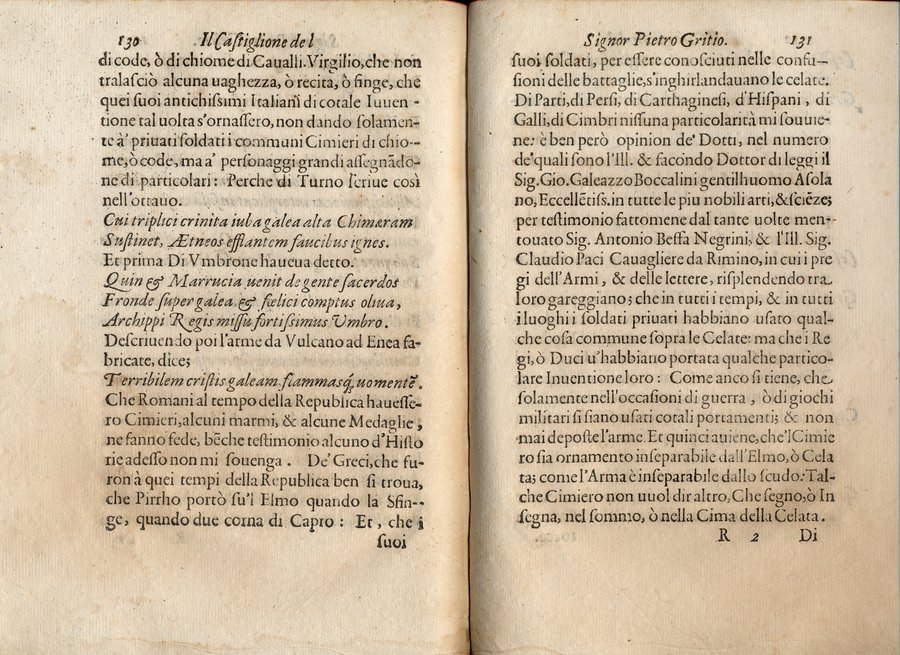 130 Il Castiglione del
di code, ò di chiome di Caualli. Virgilio, che non
tralasciò alcuna uaghezza, ò recita, ò finge, che
quei suoi antichissimi Italiani di cotale Iuuen-
tione tal uolta s'ornassero, non dando solamen-
te à priuati soldati i communi Cimieri di chio-
me, ò code, ma a' personaggi grandi assegnādo-
ne di particolari: Perche di Turno scriue così
nell'ottauo.
Cui triplici crinita iuba galea alta Chimæram
Sustinet, Ætneos efflantem faucibus ignes.
Et prima Di Vmbrone haueua detto.
Quin & Marrucia uenit de gente sacerdos
Fronde super galea & fœlici comptus oliua,
Archippi Regis missu fortissimus Vmbro.
Descriuendo poi l'arme da Vulcano ad Enea fa-
bricate, dice;
Terribilem cristis galeam flammasq; uomentē.
Che Romani al tempo della Republica hauesse-
ro Cimieri, alcuni marmi, & alcune Medaglie,
ne fanno fede, bēche testimonio alcuno d'Histo
rie adesso non mi souenga. De' Greci, che fu-
ron à quei tempi della Republica ben si troua,
che Pirrho portò su'l Elmo quando la Sfin-
ge, quando due corna di Capro: Et, che i
suoi
Signor Pietro Gritio. 131
suoi soldati, per essere conosciuti nelle confu-
sioni delle battaglie, s'inghirlandauano le celate.
Di Parti, di Persi, di Carthaginesi, d'Hispani, di
Galli, di Cimbri nissuna particolarità mi souuie-
ne: è ben però opinion de' Dotti, nel numero
de'quali sono l'Ill. & facondo Dottor di leggi il
Sig. Gio. Galeazzo Boccalini gentilhuomo Asola
no, Eccellētiss. in tutte le piu nobili arti, & sciēze;
per testimonio fattomene dal tante uolte men-
touato Sig. Antonio Beffa Negrini, & l'Ill. Sig.
Claudio Paci Cauagliere da Rimino, in cui i pre
gi dell'Armi, & delle lettere, risplendendo tra
loro gareggiano; che in tutti i tempi, & in tutti
i luoghi i soldati priuati habbiano usato qual-
che cosa commune sopra le Celate: ma che i Re
gi, ò Duci u'habbiano portata qualche partico-
lare Inuentione loro: Come anco si tiene, che
solamente nell'occasioni di guerra, ò di giochi
militari si siano usati cotali portamenti; & non
mai deposte l'arme. Et quinci auiene, che'l Cimie
ro sia ornamento inseparabile dall'Elmo, ò Cela
ta; come l'Arma è inseparabile dallo scudo: Tal-
che Cimiero non uuol dir altro, Che segno, ò In
segna, nel sommo, ò nella Cima della Celata.
R 2 Di